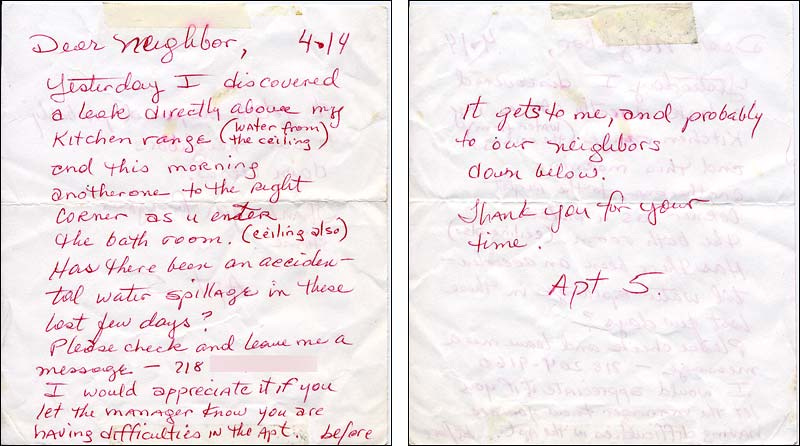 Dear Neighbor, 4-14
Yesterday I discovered
a leak directly above my
Kitchen range (water from
the ceiling)
and this morning
another one to the right
corner as u enter
the bath room. (ceiling also)
Has there been an acciden-
tal water spillage in these
last few days?
Please check and leave me a
message - 718
I would appreciate it if you
let the manager know you are
having difficulties in the Apt. before
it gets to me, and probably
to our neighbors
down below.
Thank you for your
time.
Apt 5.